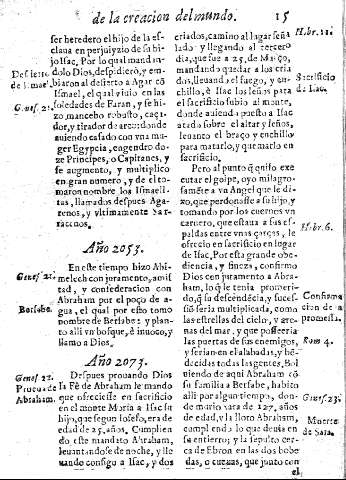 de la creacion del mundo.
15
ser heredero el hijo de la es-
claua en perjuyzio de su hi-
jo Isac. Por lo qual mandan
dolo Dios, despidierõ, y em-
biaron al desierto a Agar cõ
Ismael, el qual viuio en las
soledades de Faran, y se hi-
zo mancebo robusto, caça-
dor, y tirador de arco: donde
auiendo casado con vna mu-
ger Egypcia, engendro do-
ze Principes, o Capitanes, y
se augmento, y multiplico
en gran numero, y de el to-
maron nombre los Ismaeli-
tas, llamados despues Aga-
renos, y vltimamente Sar-
racenos.
Genes. 21.
Año 2053.
En este tiempo hizo Abi-
melech con juramento, amis-
tad, y confederacion con
Abraham por el poço de a-
gua, el qual por esto tomo
nombre de Bersabe, y plan-
to alli vn bosque, è inuoco, y
llamo a Dios.
Genes. 21.
Bersabe.
Año 2073.
Despues prouando Dios
la Fè de Abraham le mando
que ofreciesse en sacrificio
en el monte Maria a Isac su
hijo, que segun Iosefo, era de
edad de 25. años. Cumplien
do este mandato Abraham,
leuantandose de noche, y lle
uando consigo a Isac, y dos
Genes. 22.
Prueua de
Abraham.
criados, camino al lugar seña
lado y llegando al tercero
dia, que fue a 25. de Março,
mandando quedar a los cria
dos, lleuando el fuego, y cu-
chillo, è Isac los leños para
el sacrificio subio al monte,
donde auiendo puesto a Isac
atado sobre el altar y leños,
leuanto el braço y cuchillo
para matarlo, y que matlo en
sacrificio.
Hebr. 11.
Sacrificio
de Isac.
Pero al punto q̃ quiso exe
cutar el golpe, oyo milagro-
samẽte a vn Angel que le di-
xo, que perdonasse a su hijo, y
tomando por los cuernos vn
carnero, que estaua a sus es-
paldas entre vnas çarças, le
ofrecio en sacrificio en lugar
de Isac. Por esta grande obe-
diencia, y fineza, confirmo
Dios con juramento a Abra-
ham, lo q̃ le tenia prometi-
do, q̃ su descendẽcia, y suces-
siõ seria multiplicada, como
las estrellas del cielo, y are-
nas del mar, y que posseeria
las puertas de sus enemigos,
y serian en el alabadas, y bẽ-
decidas todas las gentes. Bol
uiendo de aqui Abraham cõ
su familia a Bersabe, habito
alli por algun tiempo, don-
de murio sara de 127. años
de edad, y la lloro Abraham,
cumpliendo lo que deuia en
su entierro; y la sepulto cer-
ca de Ebron en las dos bobe
das, o cueuas, que junto con
el
Hebr. 6.
Confirma
cion de la
promessa.
Rom 4.
Genes. 23.
Muerte
de Sara.